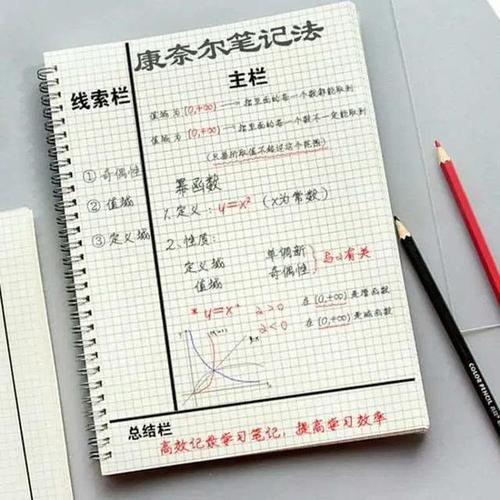 康奈尔笔记法
线索栏
主栏
值域为 (0,+∞) → 指里面的每一个数都能取到
值域为 (0,+∞) → 指里面的每一个数不一定能取到
(只要所取值不超过这个范围)
① 奇偶性
② 值域
③ 定义域
幂函数
1. 定义: y=x² (x为常数)
2. 性质:
定义域 单调新
值域 奇偶性
与α有关
* y=xᵅ α>0 在 (0,+∞) 是增函数
α<0 在 (0,+∞) 是减函数
总结栏
高效记录学习笔记,提高学习效率
COLOR PENCIL